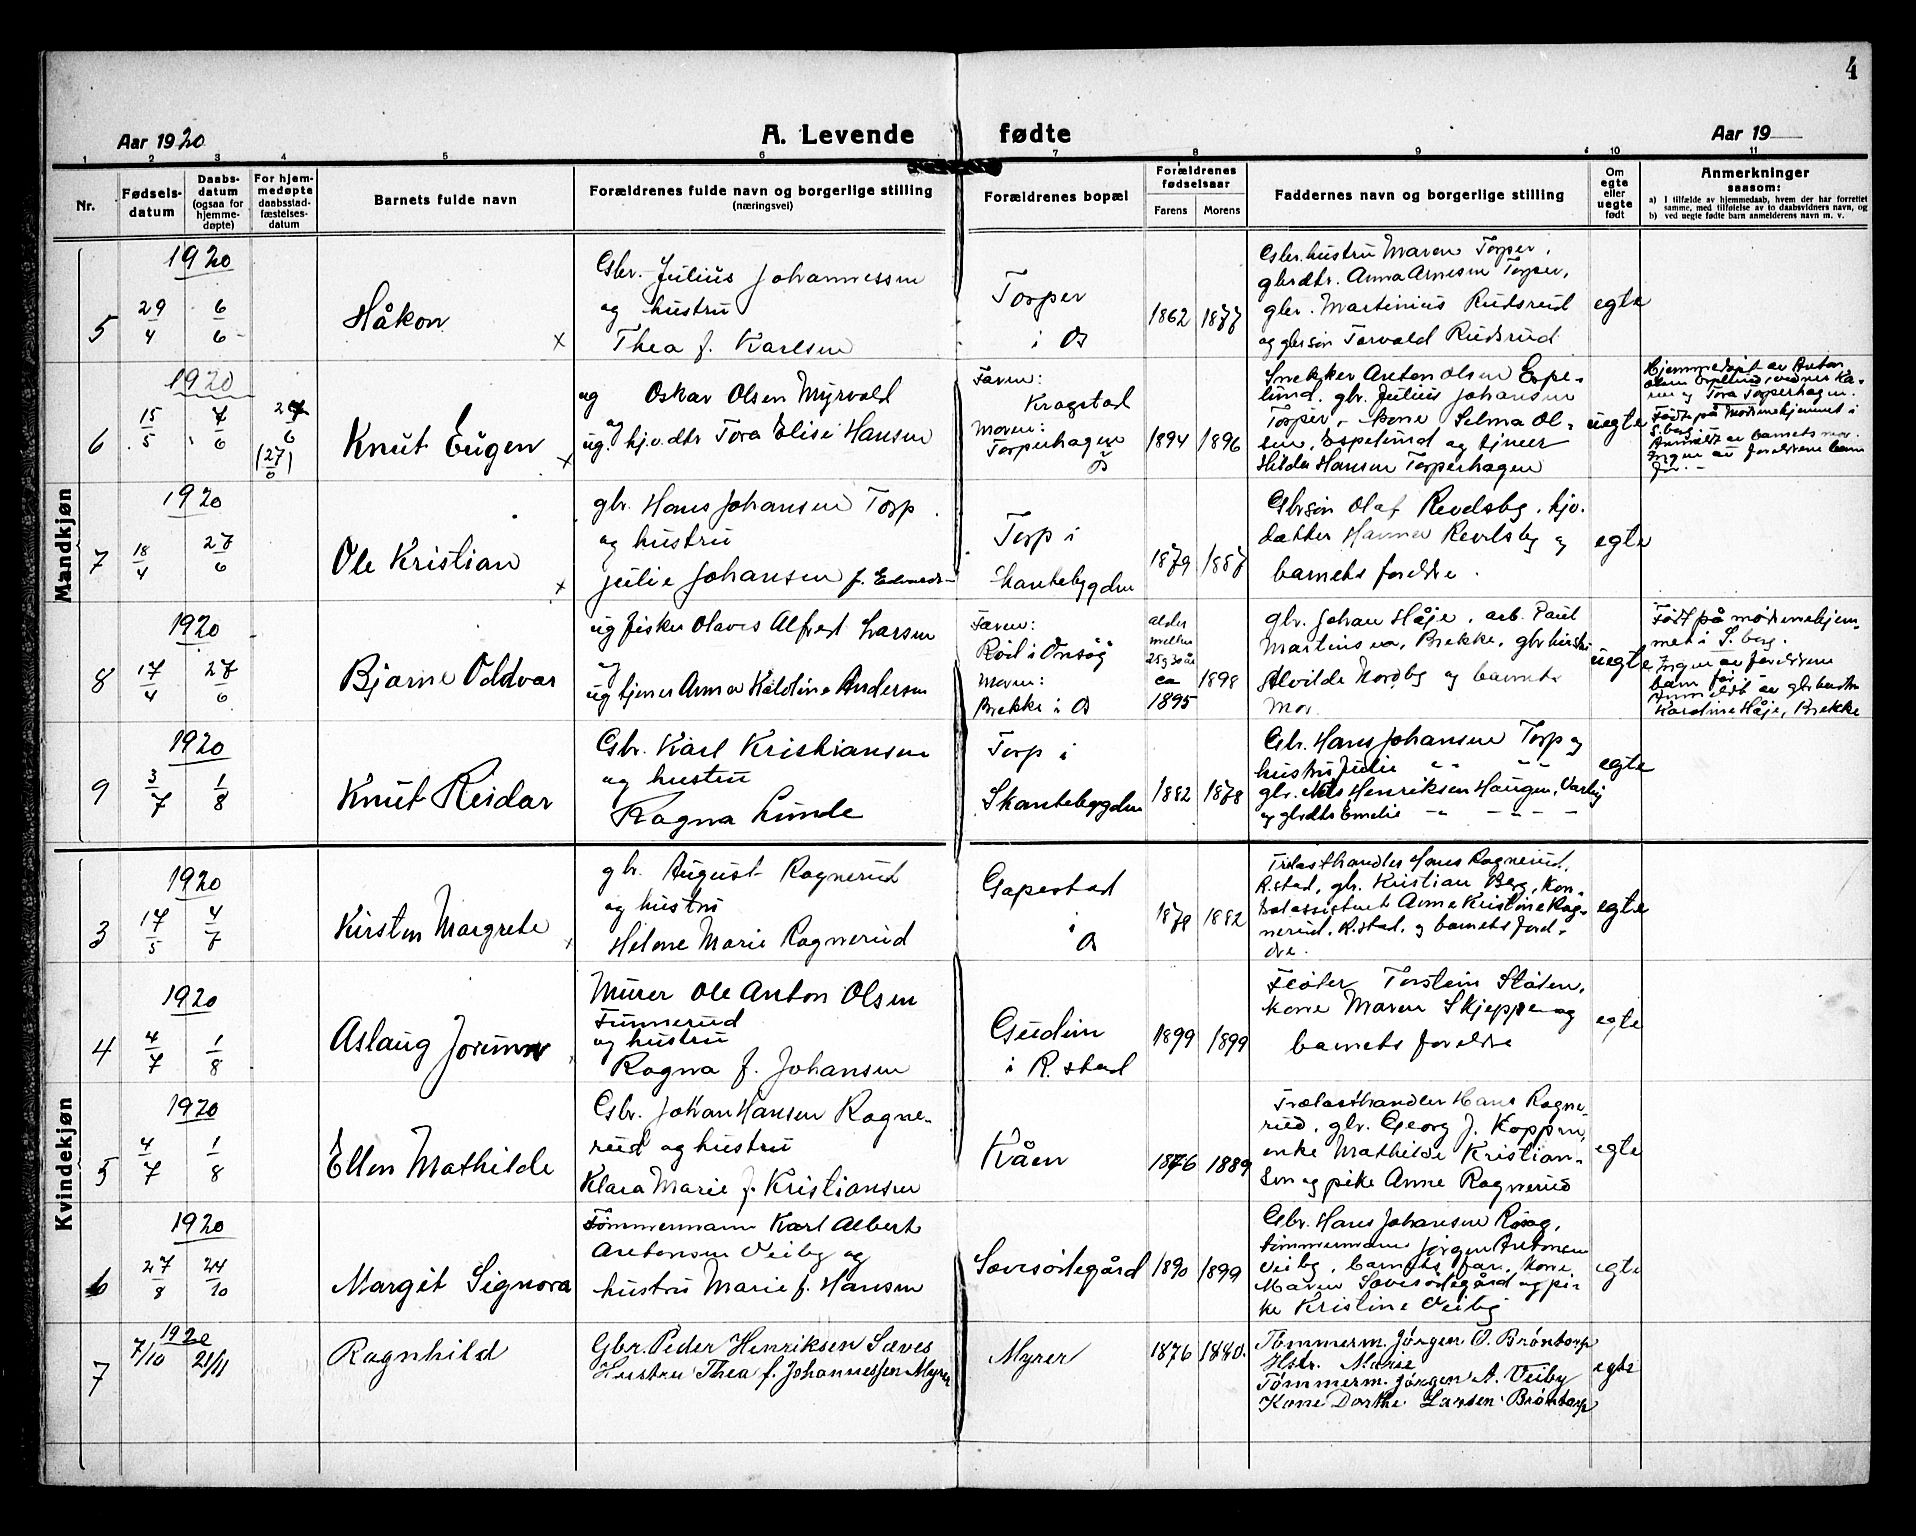 4
Aar 1920
A. Levende fødte
Aar 19
1 2 3 4 5 6 7 8 9 10 11
Nr.
Fødsels-
datum
Daabs-
datum
(ogsaa for
hjemme-
døpte)
For hjem-
medøpte
daabsstad-
fæstelses-
datum
Barnets fulde navn
Forældrenes fulde navn og borgerlige stilling
(næringsvei)
Forældrenes bopæl
Forældrenes
fødselsaar
Farens
Morens
Faddernes navn og borgerlige stilling
Om
egte
eller
uegte
født
Anmerkninger
saasom:
a) I tilfælde av hjemmedaab, hvem der har forrettet
samme, med tilføielse av to daabsvidners navn, og
b) ved uegte fødte barn anmelderens navn m. v.
Mandkjøn
5
1920
29/4
6/6
Håkon
x
Gbr. Julius Johannessen
og hustru
Thea f. Karlsen
Torper
i Os
1862
1877
Gbr.hustru Maren Torper,
gbrdtr. Anna Arnesen Torper,
gbr. Martinius Rudsrud
og gbrsøn Torvald Rudsrud
egte
6
1920
15/5
7/6
27/6
(27/6)
Knut Eugen
x
ug Oskar Olsen Myrvold
og
ug. hj.v.dtr Tora Elise Hansen
Faren:
Kragstad
Moren:
Torperhagen
Os
1894
1896
Snekker Anton Olsen Espe-
lund, gbr. Julius Johansen
Torper, kone Selma Ol-
sen, Espelund og tjener
Hilda Hansen Torperhagen
uegte
Hjemmedøpt av Anton
Olsen Espelund, vidner Ka-
og Tora Torperhagen.
Født på Mødrehjemmet i
S.berg.
Anmeldt av barnets mor.
Ingen av foreldrene barn
før. -
7
1920
18/4
27/6
Ole Kristian
x
gbr. Hans Johansen Torp
og hustru
Julie Johansen f.
Torp i
Skantebygden
1879
1887
Gbrsøn Olaf Revdsby, hjv.
datter Hanna Revdsby og
barnets foreldre.
egte
8
1920
17/4
27/6
Bjarne Oddvar
ug fisker Olaves Alfred Larsen
og
ug tjener Anna Kaldine Andersen
Faren:
Röil i Onsøy
Moren:
Brekke i Os
alder
mellem
25 og 30 år
ca
1895
1898
gbr. Johan Håje, arb. Paul
Martinsen, Brekke, gbr.hustru
Alvilde Nordby og barnets
Mor.
uegte
Født på mødrehjem-
met i S. berg.
Ingen av foreldrene
barn før
Anmeldt av gbr.hustru
Kardine Håje, Brekke
9
1920
3/7
1/8
Knut Reidar
Gbr. Karl Kristiansen
og hustru
Ragna Lunde
Torp i
Skantebygden
1882
1878
Gbr. Hans Johansen Torp og
hustru Julie " " " "
gbr. Nils Henriksen Haugen, Varby
og gbrdtr Emelie - - - -
egte
Kvindekjøn
3
1920
17/5
4/7
Kirsten Margrete
x
gbr. August Ragnerud
og hustru
Helene Marie Ragnerud
Gapestad
i
Os
1878
1882
Trelasthandler Hans Ragnerud,
R.stad, gbr. Kristian Berg, kon-
torassistent Anna Kristine Rag-
nerud, R.stad, og barnets foreld-
re.
egte
4
1920
4/7
1/8
Aslaug Jorunn
Murer Ole Anton Olsen
Tunnerud
og hustru
Ragna f. Johansen
Gudim
i R. stad
1899
1899
Fløter Torstein Slåten,
kone Maren Skjeppe og
barnets foreldre
egte
5
1920
4/7
1/8
Ellen Mathilde
Gbr. Johan Hansen Ragne-
rud og hustru
Klara Marie f. Kristiansen
Kåen
1876
1889
Trælasthandler Hans Ragne-
rud, gbr. Georg J. Koppen,
enke Mathilde Kristian-
sen og pike Anne Ragnerud
egte
6
1920
27/8
24/10
Margit Signora
Tømmermann Karl Albert
Antonsen Veiby og
hustru Marie f. Hansen
Sævisødegård
1890
1899
Gbr. Hans Johansen
tømmermann Jørgen Antonsen
Veiby, barnets far, kone
Maren Sævisødegård og pi-
ke Kristine Veiby
egte
7
1920
7/10
21/11
Ragnhild
Gbr. Peder Henriksen Sæves
Hustru Thea f. Johannessen Myrer
Myrer
1876
1880.
Tømmerm. Jørgen O. Brøntorp
Hstr. Marie
Tømmerm. Jørgen A. Veiby
Kone Dorthe Larsen Brøntorp
egte